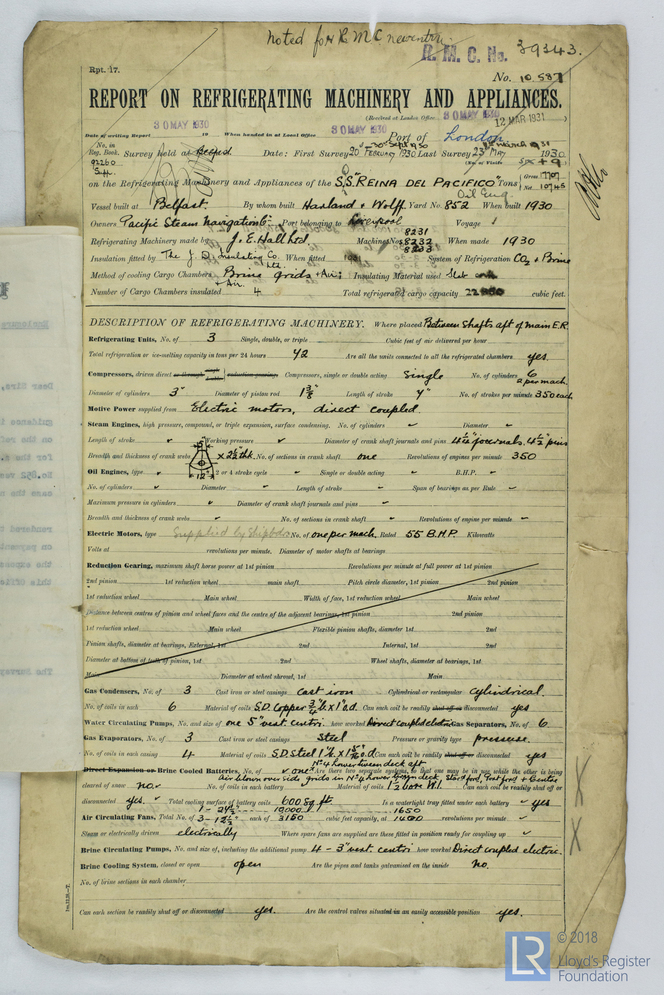 noted for R.M.C
R. M. C. No. 39143.
Rpt. 17.
No. 10537
REPORT ON REFRIGERATING MACHINERY AND APPLIANCES.
(Received at London Office
30 MAY 1930
12 MAR 1931
Date of writing Report 30 MAY 1930 19 When handed in at Local Office 30 MAY 1930 Port of London
No. in Reg. Book. Survey held at Belfast Date: First Survey 20 February 1930 Last Survey 23 May 1930
92260 Sup.
(No. of Visits
on the Refrigerating Machinery and Appliances of the S.S. "REINA DEL PACIFICO" Tons Gross 17707 Net 10745
Oil Eng
Vessel built at Belfast. By whom built Harland & Wolff. Yard No. 852 When built 1930
Owners Pacific Steam Navigation Co. Port belonging to Liverpool Voyage
Refrigerating Machinery made by J. E. Hall Ltd Machine Nos. 8231 8232 8233 When made 1930
Insulation fitted by The J. D. Insulating Co. Ltd. When fitted 1931 System of Refrigeration CO2 & Brine
Method of cooling Cargo Chambers Brine grids & Air; Insulating Material used Slab cork
& Air.
Number of Cargo Chambers insulated 4 Total refrigerated cargo capacity cubic feet.
DESCRIPTION OF REFRIGERATING MACHINERY. Where placed Between Shafts aft of main E.R.
Refrigerating Units, No. of 3 Single, double, or triple Cubic feet of air delivered per hour
Total refrigeration or ice-melting capacity in tons per 24 hours 42 Are all the units connected to all the refrigerated chambers yes.
Compressors, driven direct or through single double reduction gearing. Compressors, single or double acting Single No. of cylinders 6 2 per mach.
Diameter of cylinders 3" Diameter of piston rod 1 3/8" Length of stroke 4" No. of strokes per minute 350 each
Motive Power supplied from Electric motors, direct coupled.
Steam Engines, high pressure, compound, or triple expansion, surface condensing. No. of cylinders Diameter
Length of stroke Working pressure Diameter of crank shaft journals and pins 4 1/2" pins
Breadth and thickness of crank webs × 2 1/2" thk. No. of sections in crank shaft one Revolutions of engines per minute 350
12"
Oil Engines, type 2 or 4 stroke cycle Single or double acting B.H.P.
No. of cylinders Diameter Length of stroke Span of bearings as per Rule
Maximum pressure in cylinders Diameter of crank shaft journals and pins
Breadth and thickness of crank webs No. of sections in crank shaft Revolutions of engine per minute
Electric Motors, type Supplied by Shipbdrs No. of one per mach. Rated 55 B.H.P. Kilowatts
Volts at revolutions per minute. Diameter of motor shafts at bearings
Reduction Gearing, maximum shaft horse power at 1st pinion Revolutions per minute at full power at 1st pinion
2nd pinion 1st reduction wheel main shaft Pitch circle diameter, 1st pinion 2nd pinion
1st reduction wheel Main wheel Width of face, 1st reduction wheel Main wheel
Distance between centres of pinion and wheel faces and the centre of the adjacent bearings, 1st pinion 2nd pinion
1st reduction wheel Main wheel Flexible pinion shafts, diameter 1st 2nd
Pinion shafts, diameter at bearings, External, 1st 2nd Internal, 1st 2nd
Diameter at bottom of teeth of pinion, 1st 2nd Wheel shafts, diameter at bearings, 1st
Main Diameter at wheel shroud, 1st Main
Gas Condensers, No. of 3 Cast iron or steel casings cast iron Cylindrical or rectangular cylindrical.
No. of coils in each 6 Material of coils S.D. Copper Can each coil be readily shut off or disconnected yes
Water Circulating Pumps, No. and size of one 5" vert. centri. how worked Direct coupled electric Gas Separators, No. of 6
Gas Evaporators, No. of 3 Cast iron or steel casings Steel Pressure or gravity type pressure.
No. of coils in each casing 4 Material of coils S.D. Steel Can each coil be readily shut off or disconnected yes
No 4 lower tween deck aft
Direct Expansion or Brine Cooled Batteries, No. of one Are there two separate systems, so that one may be in use while the other is being
cleared of snow no. No. of coils in each battery Material of coils Can each coil be readily shut off or
disconnected yes. Total cooling surface of battery coils 600 Sq. ft. Is a watertight tray fitted under each battery yes
Air Circulating Fans, Total No. of each of 3150 cubic feet capacity, at 1400 revolutions per minute
1650
Steam or electrically driven electrically Where spare fans are supplied are these fitted in position ready for coupling up
Brine Circulating Pumps, No. and size of, including the additional pump 4 - 3" vert. centri how worked Direct coupled electric.
Brine Cooling System, closed or open open Are the pipes and tanks galvanised on the inside No.
No. of brine sections in each chamber
Can each section be readily shut off or disconnected yes. Are the control valves situated in an easily accessible position yes.
Dear Sirs,
The Surveyor
LR
© 2018
Lloyd's Register
Foundation